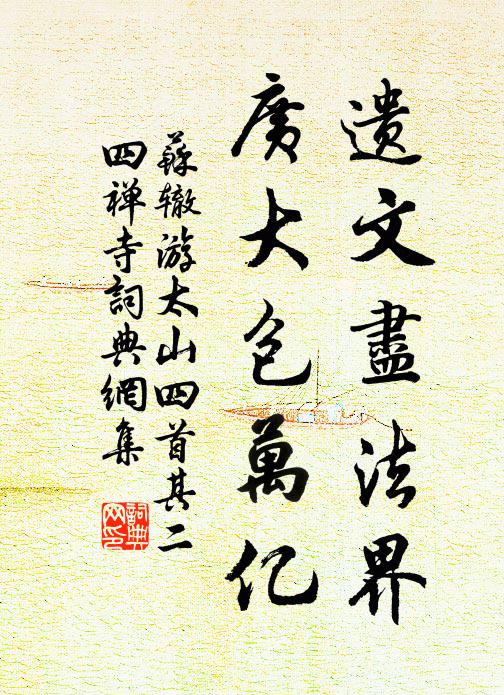 遗文盡法界
廣大包萬亿
蘇辙游太山四首其二
四禅寺詞典網集
詞典网印